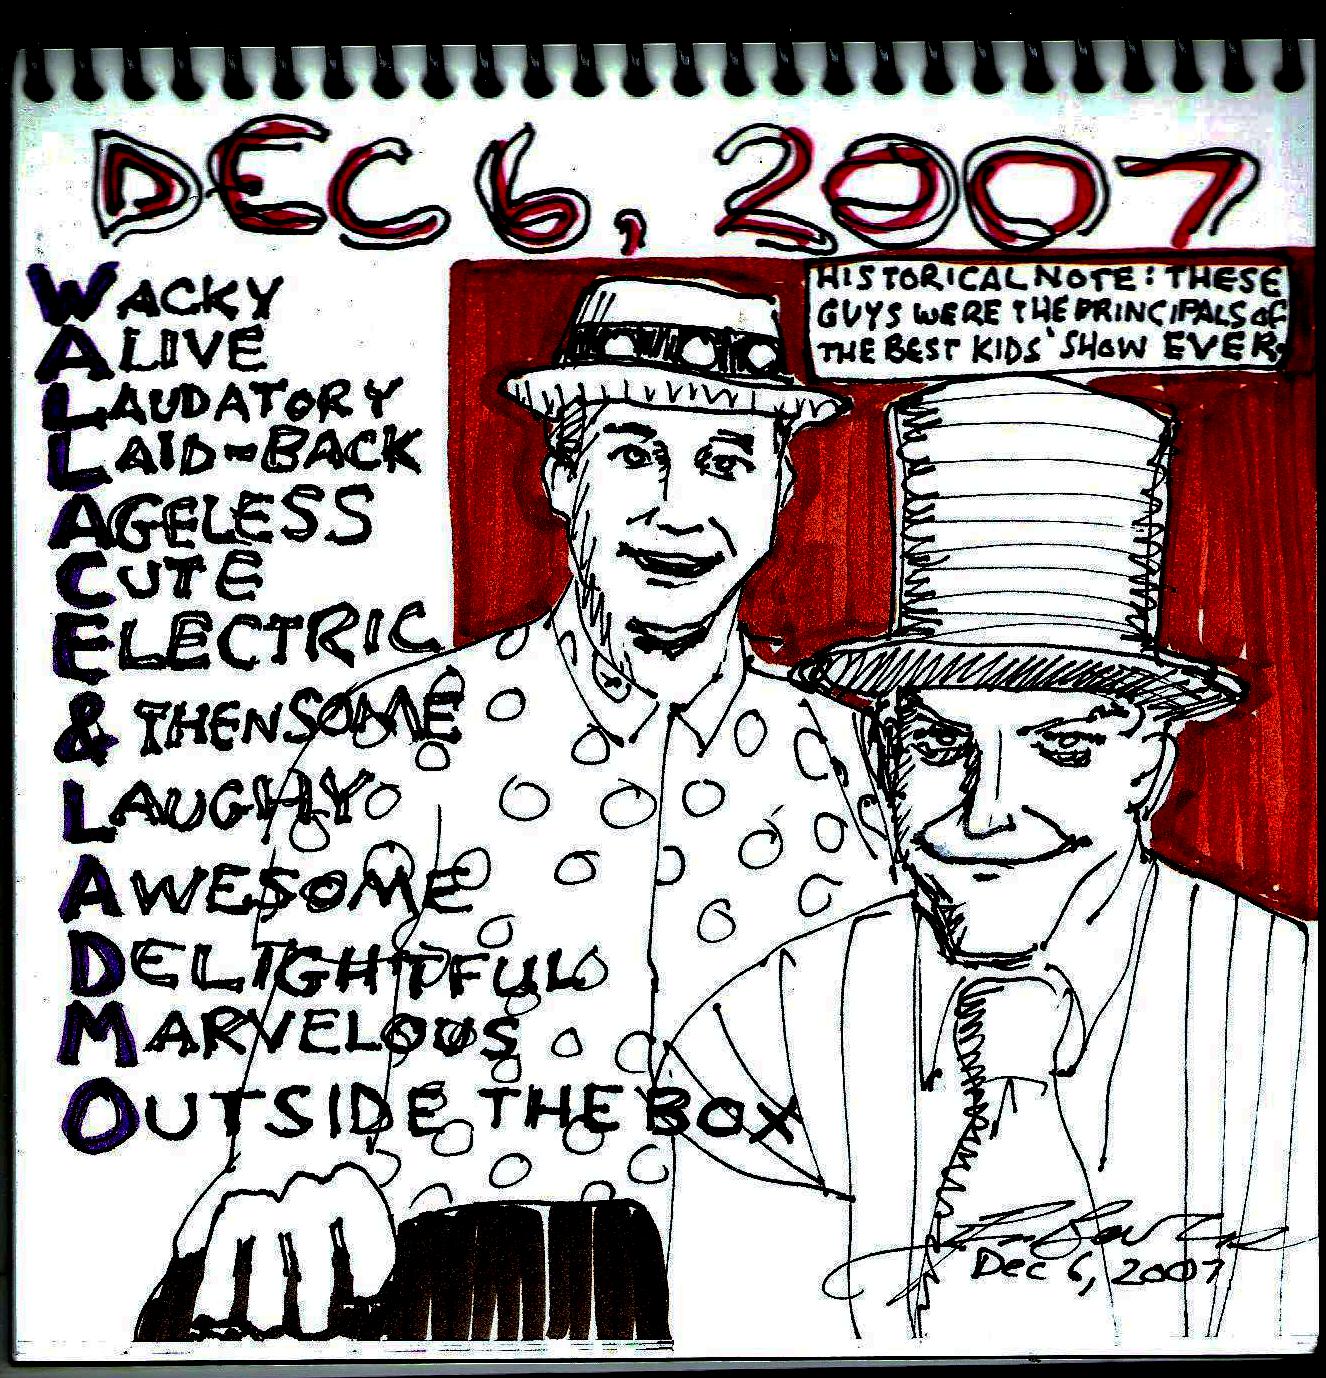 DEC 6, 2007
HISTORICAL NOTE: THESE
GUYS WERE THE PRINCIPALS OF
THE BEST KIDS' SHOW EVER.
WACKY
ALIVE
LAUDATORY
LAID-BACK
AGELESS
CUTE
ELECTRIC
& THENSOME
LAUGHY
AWESOME
DELIGHTFUL
MARVELOUS
OUTSIDE THE BOX
Dec 6, 2007